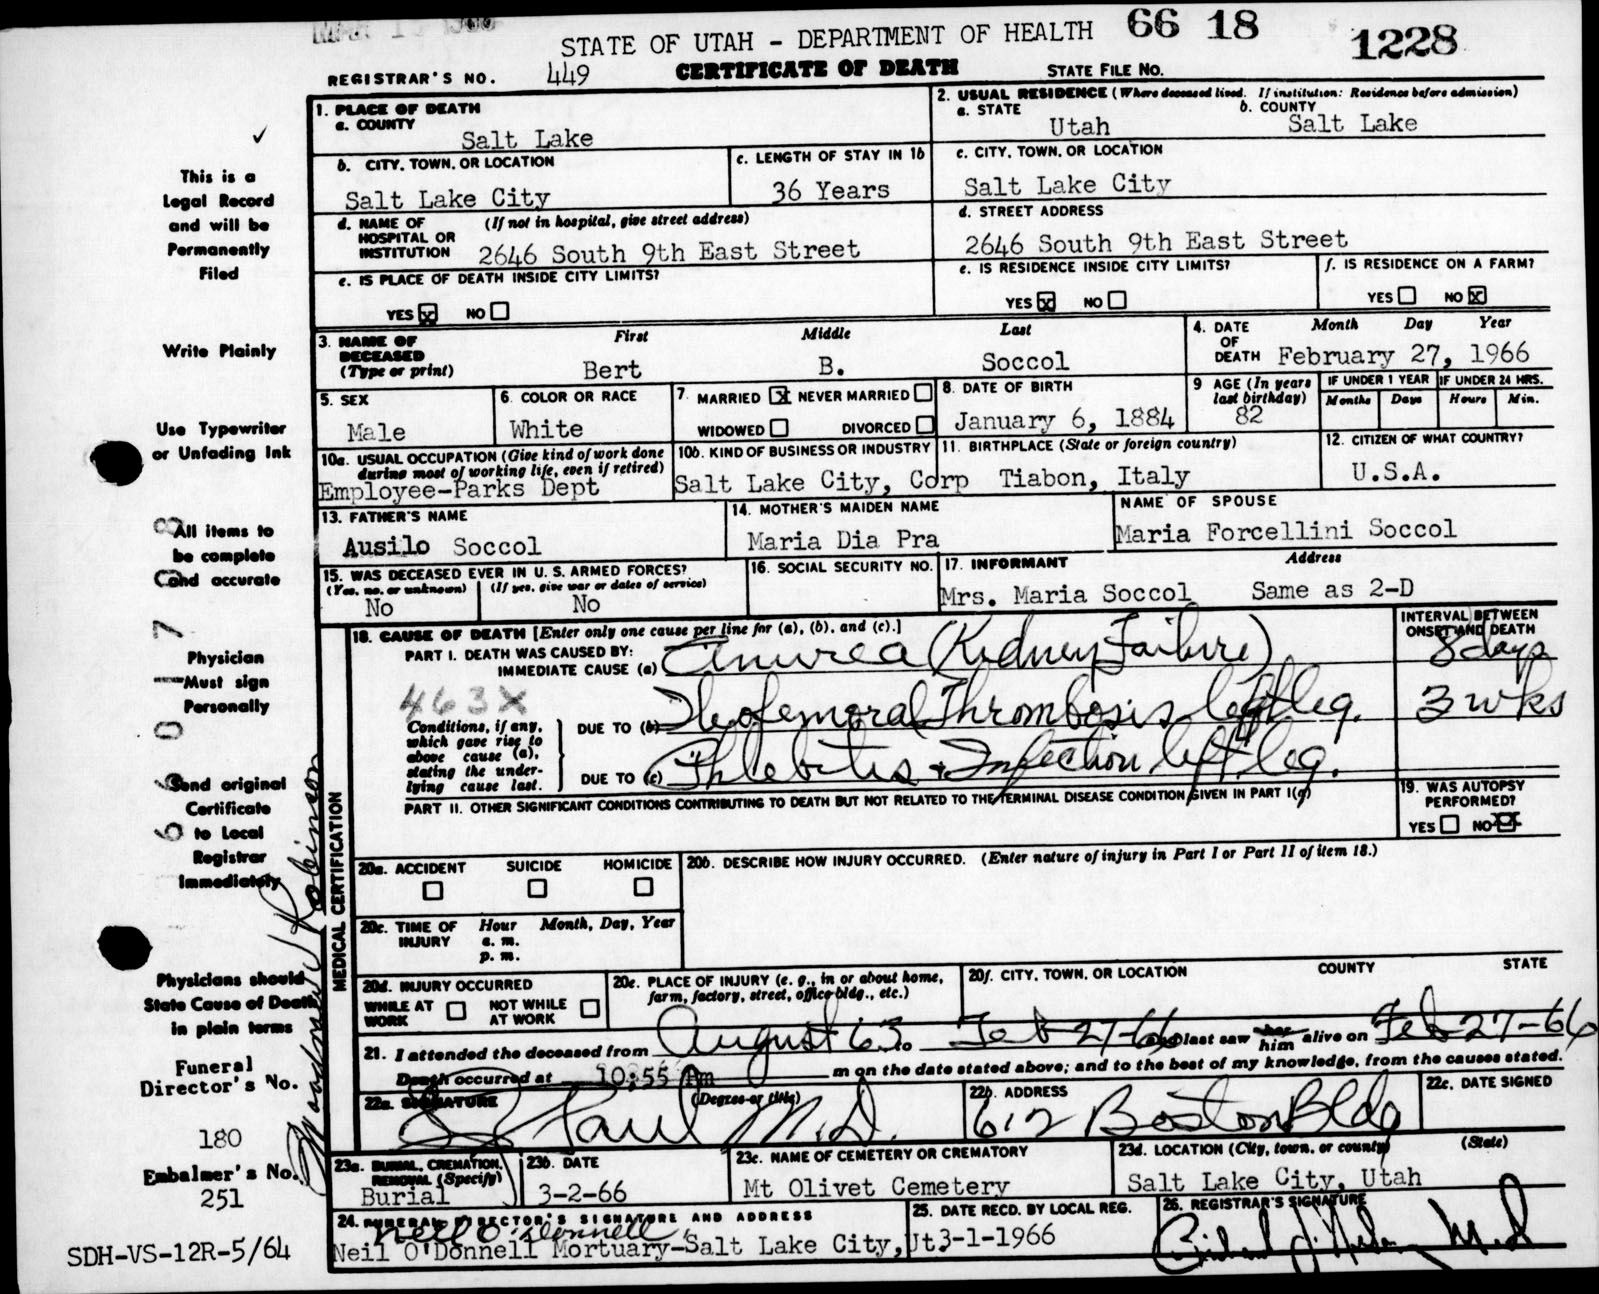 STATE OF UTAH - DEPARTMENT OF HEALTH 66 18 1228
REGISTRAR'S NO. 449 CERTIFICATE OF DEATH STATE FILE NO.
1. PLACE OF DEATH
a. COUNTY
Salt Lake
2. USUAL RESIDENCE (Where deceased lived. If institution: Residence before admission)
a. STATE b. COUNTY
Utah Salt Lake
b. CITY, TOWN, OR LOCATION
Salt Lake City
c. LENGTH OF STAY IN 1b
36 Years
c. CITY, TOWN, OR LOCATION
Salt Lake City
d. NAME OF (If not in hospital, give street address)
HOSPITAL OR
INSTITUTION 2646 South 9th East Street
d. STREET ADDRESS
2646 South 9th East Street
e. IS PLACE OF DEATH INSIDE CITY LIMITS?
YES X NO
e. IS RESIDENCE INSIDE CITY LIMITS?
YES X NO
f. IS RESIDENCE ON A FARM?
YES NO X
3. NAME OF
DECEASED
(Type or print)
First Middle Last
Bert B. Soccol
4. DATE
OF
DEATH
Month Day Year
February 27, 1966
5. SEX
Male
6. COLOR OR RACE
White
7. MARRIED X NEVER MARRIED
WIDOWED DIVORCED
8. DATE OF BIRTH
January 6, 1884
9 AGE (In years
last birthday)
82
IF UNDER 1 YEAR IF UNDER 24 HRS.
Months Days Hours Min.
10a. USUAL OCCUPATION (Give kind of work done
during most of working life, even if retired)
Employee-Parks Dept
10b. KIND OF BUSINESS OR INDUSTRY
Salt Lake City, Corp
11. BIRTHPLACE (State or foreign country)
Tiabon, Italy
12. CITIZEN OF WHAT COUNTRY?
U.S.A.
13. FATHER'S NAME
Ausilo Soccol
14. MOTHER'S MAIDEN NAME
Maria Dia Pra
NAME OF SPOUSE
Maria Forcellini Soccol
15. WAS DECEASED EVER IN U. S. ARMED FORCES?
(Yes, no, or unknown) (If yes, give war or dates of service)
No No
16. SOCIAL SECURITY NO.
17. INFORMANT Address
Mrs. Maria Soccol Same as 2-D
18. CAUSE OF DEATH [Enter only one cause per line for (a), (b), and (c).]
INTERVAL BETWEEN
ONSET AND DEATH
PART I. DEATH WAS CAUSED BY:
IMMEDIATE CAUSE (a) Anurea (Kidney Failure) 8 days
463X
Conditions, if any,
which gave rise to
above cause (a),
stating the under-
lying cause last.
DUE TO (b) Ileofemoral Thrombosis left leg. 3 wks
DUE TO (c) Phlebitis + Infection left leg.
PART II. OTHER SIGNIFICANT CONDITIONS CONTRIBUTING TO DEATH BUT NOT RELATED TO THE TERMINAL DISEASE CONDITION GIVEN IN PART I(a)
19. WAS AUTOPSY
PERFORMED?
YES NO X
20a. ACCIDENT SUICIDE HOMICIDE
20b. DESCRIBE HOW INJURY OCCURRED. (Enter nature of injury in Part I or Part II of item 18.)
20c. TIME OF Hour Month, Day, Year
INJURY a. m.
p. m.
20d. INJURY OCCURRED
WHILE AT NOT WHILE
WORK AT WORK
20e. PLACE OF INJURY (e. g., in or about home,
farm, factory, street, office bldg., etc.)
20f. CITY, TOWN, OR LOCATION COUNTY STATE
21. I attended the deceased from August 63 to Feb-27-66 and last saw her him alive on Feb-27-66
Death occurred at 10:55 Pm m on the date stated above; and to the best of my knowledge, from the causes stated.
22a. SIGNATURE (Degree or title)
Paul M.D.
22b. ADDRESS
612 Boston Bldg
22c. DATE SIGNED
23a. BURIAL, CREMATION,
REMOVAL (Specify)
Burial
23b. DATE
3-2-66
23c. NAME OF CEMETERY OR CREMATORY
Mt Olivet Cemetery
23d. LOCATION (City, town, or county) (State)
Salt Lake City, Utah
24. FUNERAL DIRECTOR'S SIGNATURE AND ADDRESS
Neil O'Donnell
Neil O'Donnell Mortuary-Salt Lake City, Ut.
25. DATE RECD. BY LOCAL REG.
3-1-1966
26. REGISTRAR'S SIGNATURE
M.D
MEDICAL CERTIFICATION
This is a
Legal Record
and will be
Permanently
Filed
Write Plainly
Use Typewriter
or Unfading Ink
All items to
be complete
and accurate
Physician
Must sign
Personally
Send original
Certificate
to Local
Registrar
Immediately
Physicians should
State Cause of Death
in plain terms
Funeral
Director's No.
180
Embalmer's No.
251
Robinson
SDH-VS-12R-5/64